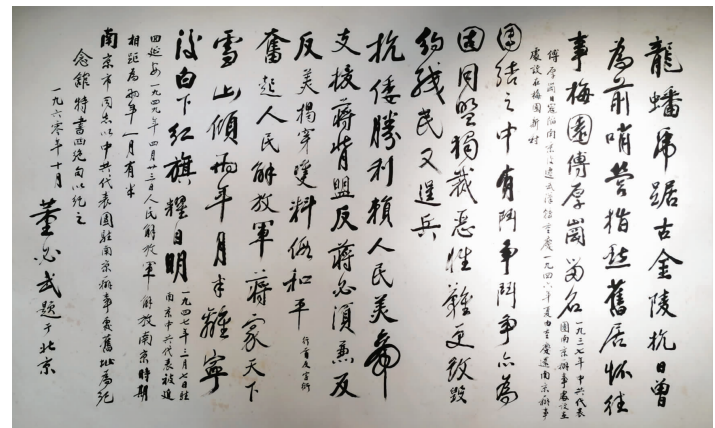 龍蟠虎踞古金陵抗日曾
為前哨營指點舊居怀往
事梅園傅厚崗留名
一九三七年中共代表
團南京辦事處設在
傅厚崗日寇陷南京
一九四六年夏由重慶遷南京辦事
處設在梅園新村
團結之中有鬥爭鬥爭亦為
固同盟獨裁惡性難更改毀
約殘民又逞兵
抗倭勝利賴人民美帝
支援蔣背盟反蔣必須兼反
反美揭穿雙料偽和平
奮起人民解放軍蔣家天下
雪山傾兩年月半離寧
後白下紅旗耀日明
一九四七年三月七日駐
南京中共代表被迫
回延安一九四九年四月廿三日人民解放軍解放南京時期
相距為兩年一月有半
南京市同志以中共代表團駐南京辦事處舊址為紀
念館特書四絕句以紀之
一九六零年十月
董必武題于北京